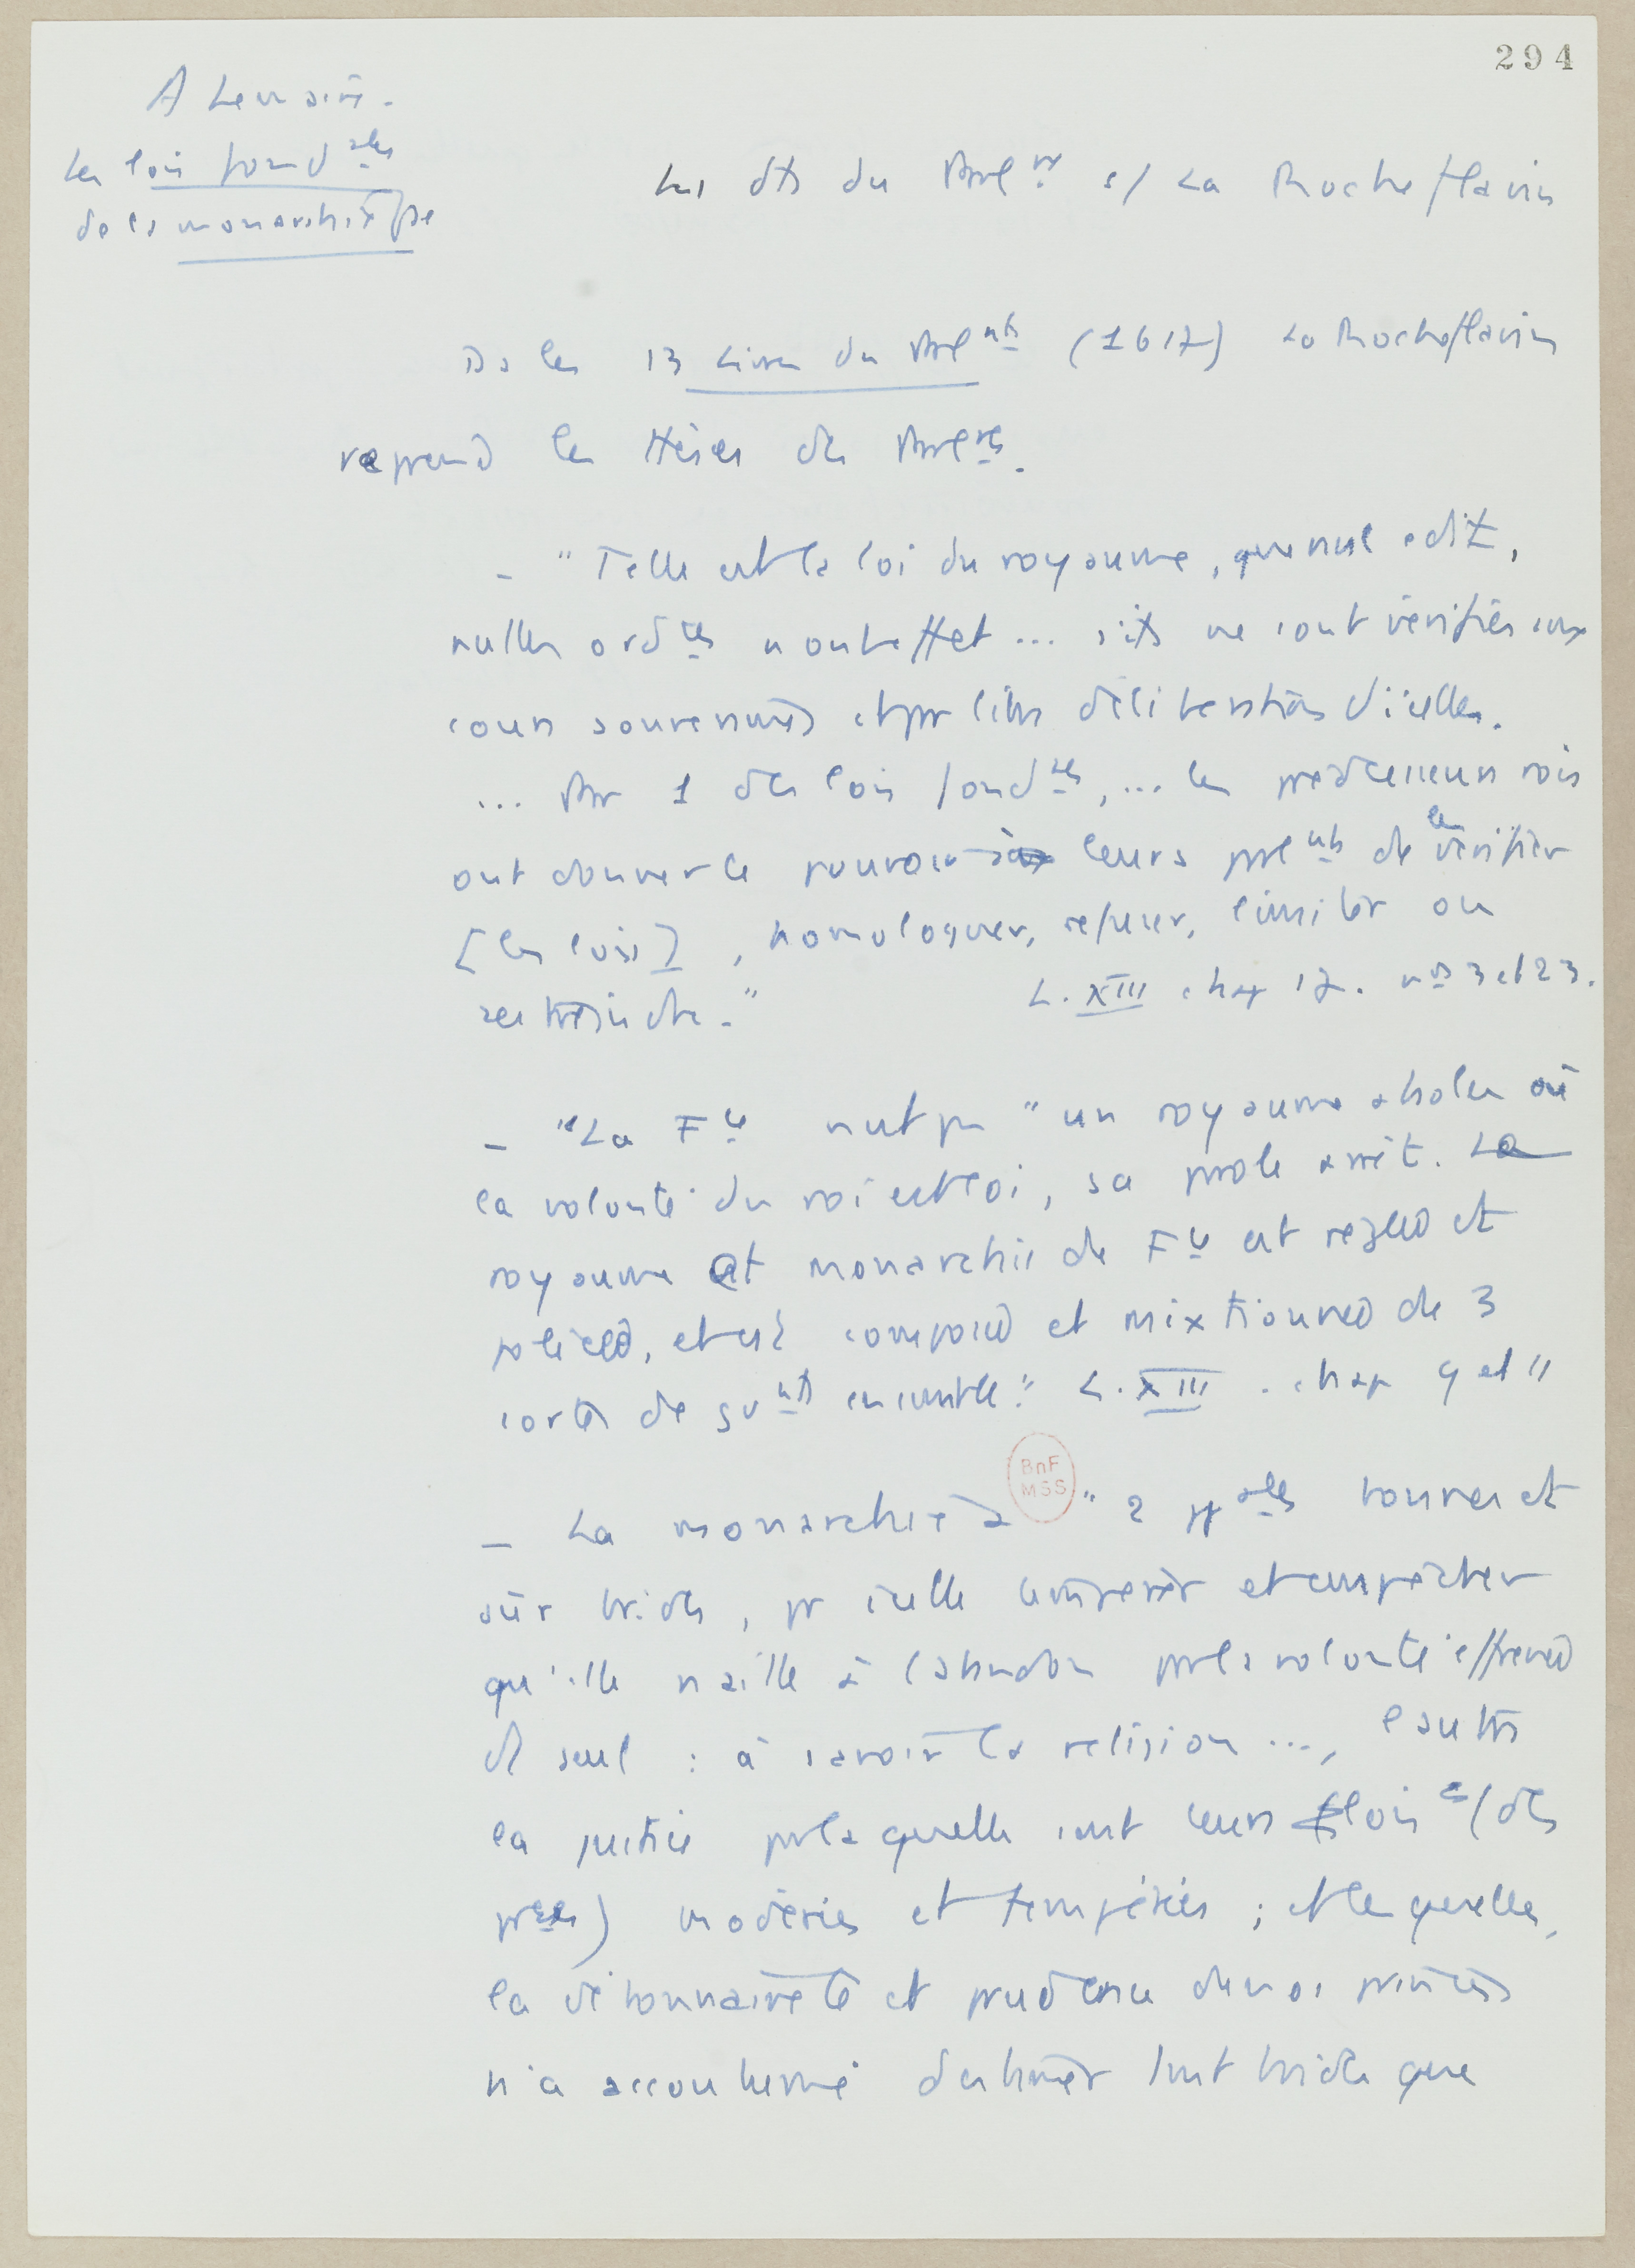 294
A Lemaire.
Les lois fondales
de la monarchie fse
Les dts du Parlt s/ La Rocheflavin
Ds les 13 Livres du Parlnts (1617) La Rocheflavin
reprend les thèses des Parlres.
- "Telle est la loi du royaume, que nul edit,
nulles ordces n'ont effet ... s'ils ne sont vérifiés aux
cours souveraines et par libre délibération d'icelles.
... Par 1 des lois fondles, ... les prédécesseurs rois
ont donner le pouvoir à leurs parlnts de les vérifier
[les lois], homologuer, refuser, limiter ou
restreindre."
L. XIII chap 17. nos 3 et 23.
- "La Fce n'est pas "un royaume absolu où
la volonté du roi est loi, sa parole arrêt. La
royaume et monarchie de Fce est reglée et
policée, et est composée et mixtionnée de 3
sortes de gvnts ensemble". L. XIII. chap 9 et 11
BnF
MSS
- La monarchie a "2 ppales bonnes et
sûr brides, pr icelle tempérer et empêcher
qu'elle n'aille à l'abandon par la volonté effrenée
d'1 seul : à savoir la religion ..., l'autre
la justice par laquelle sont leurs lois (des
pces) modérées et tempérées ; et lesquelles,
la débonnaireté et prudence de nos princes
n'a accoutumé d'estimer tant bride que